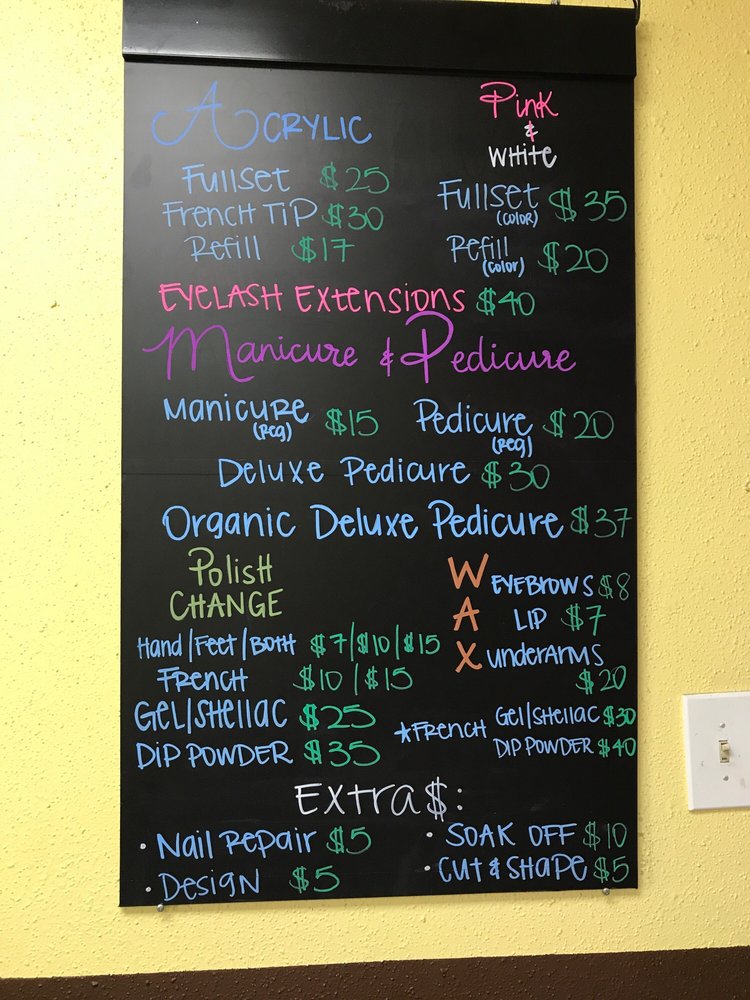 Acrylic
Fullset $25
French Tip $30
Refill $17
Pink
&
White
Fullset $35
(color)
Refill $20
(color)
Eyelash Extensions $40
Manicure & Pedicure
Manicure $15
(Reg)
Pedicure $20
(Reg)
Deluxe Pedicure $30
Organic Deluxe Pedicure $37
Polish
CHANGE
Hand/Feet/Both $7/$10/$15
French $10/$15
Gel/Shellac $25
Dip Powder $35
WAX
Eyebrows $8
Lip $7
Underarms
$20
*French Gel/Shellac $30
Dip Powder $40
Extra$:
• Nail Repair $5
• Design $5
• Soak Off $10
• Cut & Shape $5